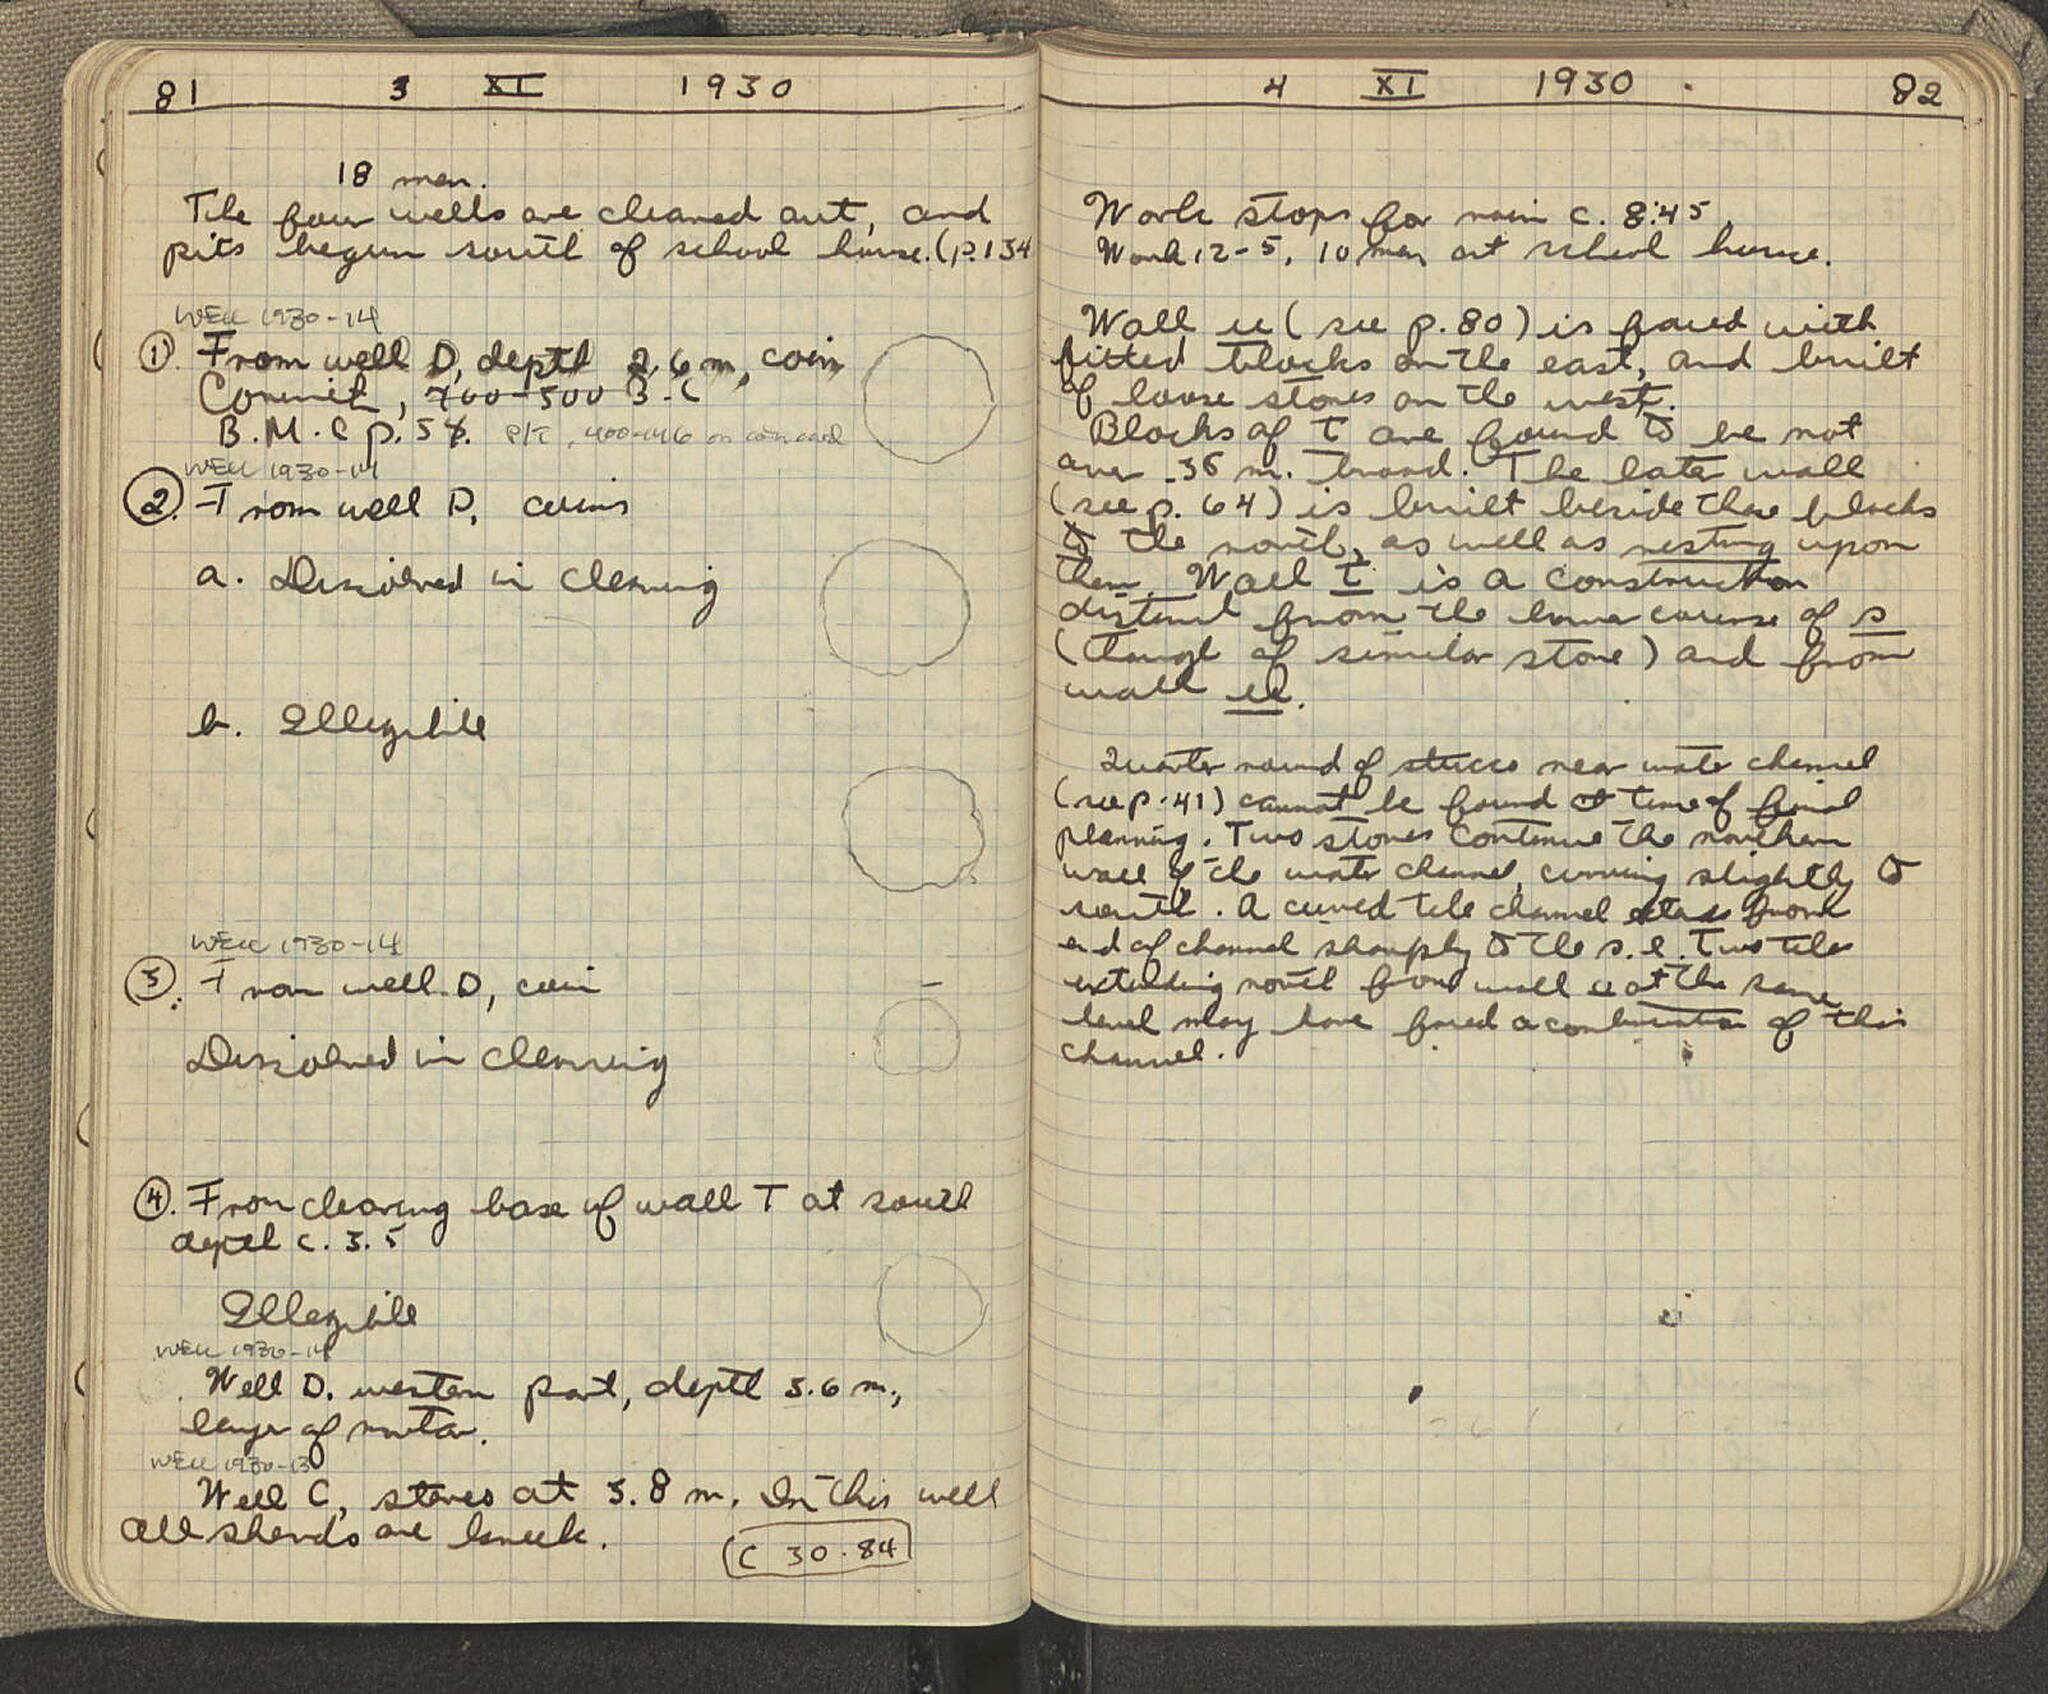 81 3 XI 1930
18 men.
The four wells are cleaned out, and
pits begun south of school house. (p. 134
WELL 1930-14
1. From well D, depth 2.6 m, coin
Corinth, 400-300 B.C
B.M.C p. 54. P/T, 400-146 on coin card
WELL 1930-14
2. From well D, coins
a. Dissolved in cleaning
b. Illegible
WELL 1930-14
3. From well D, coin
Dissolved in cleaning
4. From clearing base of wall T at south
depth c. 3.5
Illegible
WELL 1930-14
Well D. western part, depth 3.6 m.,
layer of mortar.
WELL 1930-13
Well C, stereo at 3.8 m. In this well
all sherds are Greek.
C 30.84
4 XI 1930 82
Work stops for rain c. 8:45,
Work 12-5, 10 men at school house.
Wall u (see p. 80) is faced with
fitted blocks on the east, and built
of loose stones on the west.
Blocks of T are found to be not
over .36 m. broad. The later wall
(see p. 64) is built beside these blocks
to the north, as well as resting upon
them. Wall t is a construction
distinct from the lower course of s
(though of similar stone) and from
wall u.
Quarter round of stucco near water channel
(see p. 41) cannot be found at time of final
planning. Two stones continue the northern
wall of the water channel, curving slightly to
south. A curved tile channel starts from
end of channel sharply to the s.e. Two tiles
extending north from wall u at the same
level may have formed a continuation of this
channel.